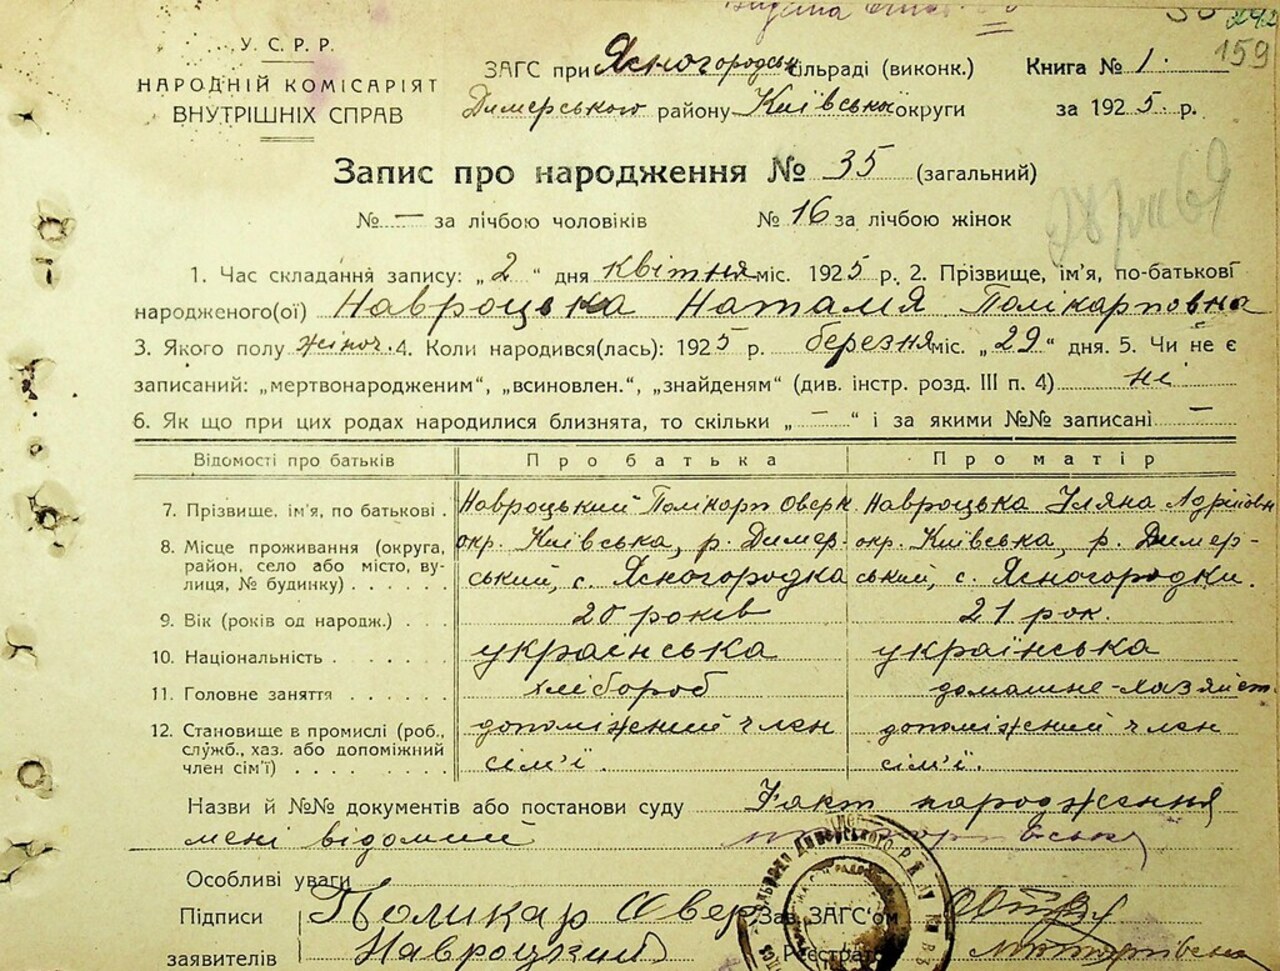 У. С. Р. Р.
НАРОДНІЙ КОМІСАРІЯТ
ВНУТРІШНІХ СПРАВ
159
ЗАГС при Ясногородськ сільраді (виконк.) Книга № 1.
Димерського району Київської округи за 1925 р.
Запис про народження № 35 (загальний)
№ — за лічбою чоловіків № 16 за лічбою жінок
1. Час складання запису: „2“ дня квітня міс. 1925 р. 2. Прізвище, ім'я, по-батькові
народженого(ої) Навроцька Наталя Полікарповна
3. Якого полу жіноч. 4. Коли народився(лась): 1925 р. березня міс. „29“ дня. 5. Чи не є
записаний: „мертвонародженим“, „всиновлен.“, „знайденям“ (див. інстр. розд. III п. 4) ні
6. Як що при цих родах народилися близнята, то скільки „—“ і за якими №№ записані —
Відомості про батьків Про батька Про матір
7. Прізвище, ім'я, по батькові . Навроцький Полікарп Оверк. Навроцька Уляна
8. Місце проживання (округа, окр. Київська, р. Димер- окр. Київська, р. Димер-
район, село або місто, ву-
лиця, № будинку) . . . . ський, с. Ясногородка ський, с. Ясногородки.
9. Вік (років од народж.) . . . 20 років 21 рок.
10. Національність . . . . . . українська українська
11. Головне заняття . . . . . хлібороб домашне-хазяйст.
12. Становище в промислі (роб., допоміжний член допоміжний член
служб., хаз. або допоміжний
член сім'ї) . . . . . . . сім'ї. сім'ї.
Назви й №№ документів або постанови суду Факт народження
мені відомий
Особливі уваги
Підписи Поликар Овер Зав. ЗАГС'ом
заявителів Навроцкий Реєстрато